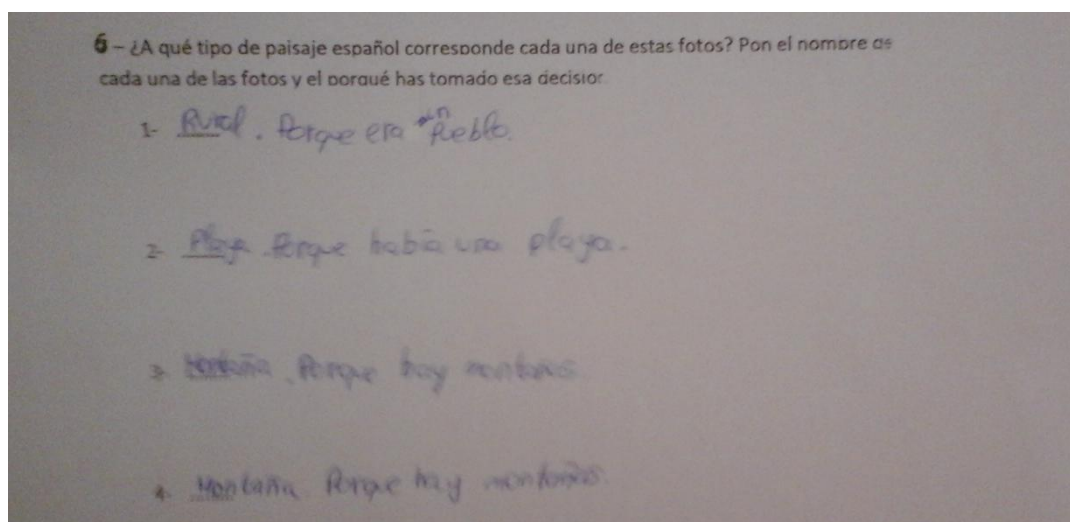 6 – ¿A qué tipo de paisaje español corresponde cada una de estas fotos? Pon el nombre de
cada una de las fotos y el porqué has tomado esa decisión
1- Rural. Porque era un Pueblo.
2- Playa. Porque había una playa.
3- Montaña. Porque hay montañas.
4- Montaña. Porque hay montañas.